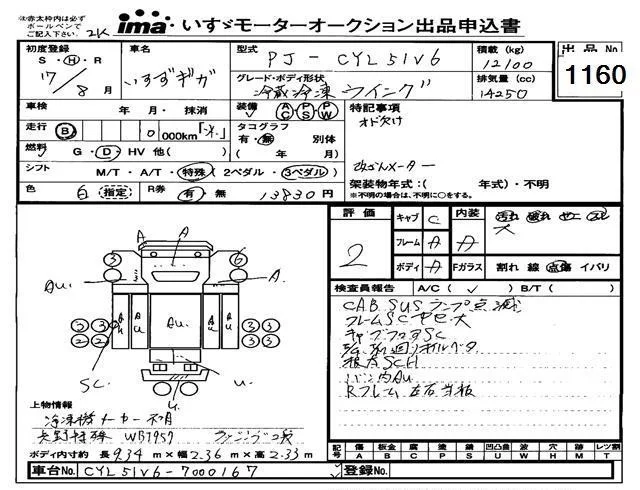 ※赤太枠内は必ず
ボールペンで
ご記入下さい。
ima いすゞモーターオークション出品申込書
初度登録 車名 型式 PJ-CYL51V6 積載 (kg) 12100 出品No. 1160
S・H・R 17/8月 いすずギガ グレード・ボディ形状 冷蔵冷凍ウイング 排気量 (cc) 14250
車検 年 月・抹消 装備 AC PS PW 特記事項
オド欠け
走行 B 0 000km タコグラフ 有・無 別体
燃料 G・D・HV 他( ) ( 年 月) 改ざんメーター
シフト M/T・A/T・特殊 (2ペダル/3ペダル) 架装物年式:( 年式)・不明
※不明の場合は、不明に○をする。
色 白 (指定) R券 有・無 13830円
評価 2 キャブ C 内装 A 汚れ 破れ セニ コレ
大
フレーム A
ボディ A Fガラス 割れ 線 点傷 イバリ
検査員報告 A/C( ✓ ) B/T( )
CAB SUSランプ点滅
フレームSC中セ大
キャブフロアSC
根太SCH
バン内Au
Rフレーム左右当板
A
A
3
6
Au.
A.
3 3
2 2
Au
Au
Au.
Au
Au
3 3
2 2
SC.
U.
U.
上物情報
冷凍機メーカー不明
長野特殊 WB7957
ボディ内寸約 長9.34m×幅2.36m×高2.33m
記号 傷 板金 腐 塗 錆 凹凸曲 波 穴 跡 レツ割
A B C P S U W H M T
車台No. CYL51V6-7000167 登録No.